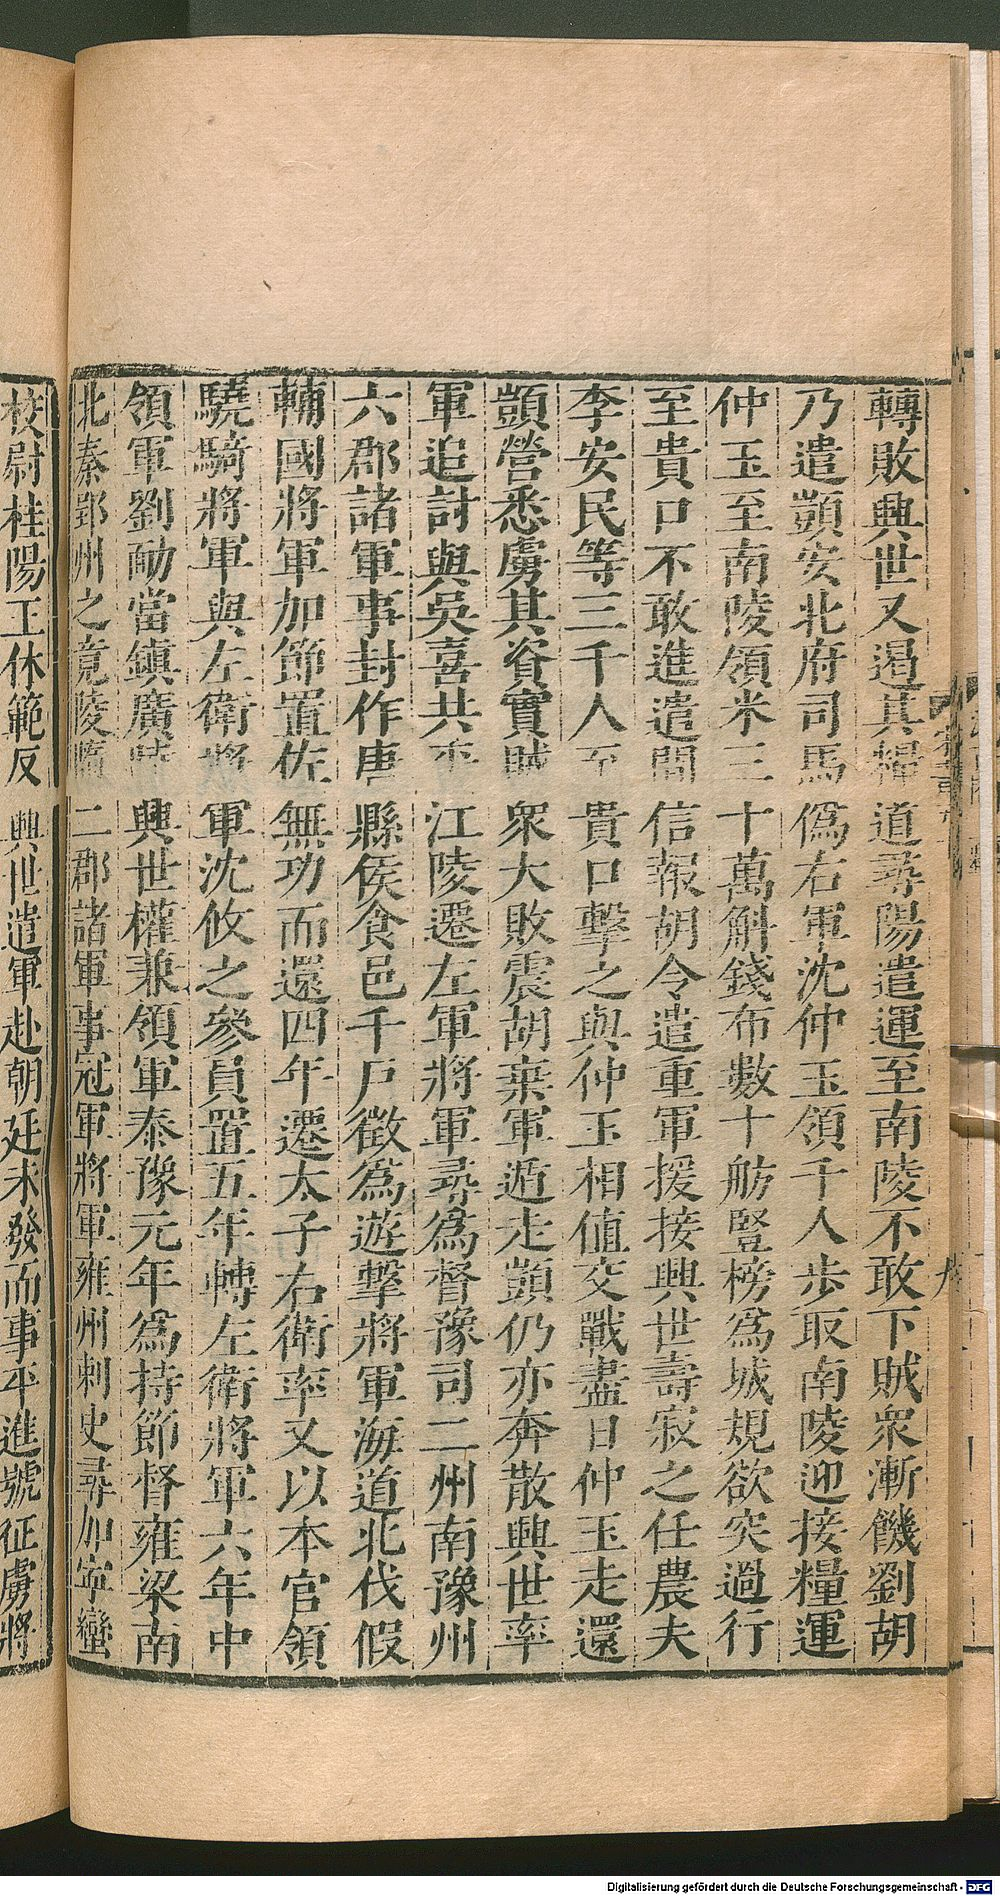 轉敗興世又遏其糧道尋陽遣運至南陵不敢下賊衆漸饑劉胡
乃遣顗安北府司馬爲右軍沈仲玉領千人步取南陵迎接糧運
仲玉至南陵領米三十萬斛錢布數十舫豎榜爲城規欲突過行
至貴口不敢進遣間信報胡令遣重軍援接興世壽寂之任農夫
李安民等三千人至貴口擊之與仲玉相值交戰盡日仲玉走還
顗營悉虜其資實賊衆大敗震胡棄軍遁走顗仍亦奔散興世率
軍追討與吳喜共平江陵遷左軍將軍尋爲督豫司二州南豫州
六郡諸軍事封作唐縣侯食邑千戶徵爲遊擊將軍海道北伐假
輔國將軍加節置佐無功而還四年遷太子右衛率又以本官領
驍騎將軍與左衛將軍沈攸之參員置五年轉左衛將軍六年中
領軍劉勔當鎮廣陵興世權兼領軍泰豫元年爲持節督雍梁南
北秦郢州之竟陵隨二郡諸軍事冠軍將軍雍州刺史尋加寧蠻
校尉桂陽王休範反興世遣軍赴朝廷未發而事平進號征虜將
Digitalisierung gefördert durch die Deutsche Forschungsgemeinschaft - DFG